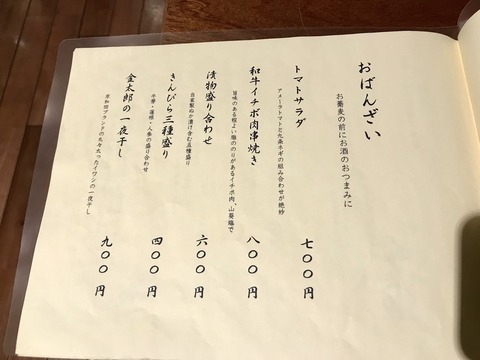 おばんざい
お蕎麦の前にお酒のおつまみに
トマトサラダ
アメーラトマトと九条ネギの組み合わせが絶妙
七〇〇円
和牛イチボ肉串焼き
旨味のある程よい脂ののりがあるイチボ肉、山葵塩で
八〇〇円
漬物盛り合わせ
自家製ぬか漬け含む五種盛り
六〇〇円
きんぴら三種盛り
牛蒡・蓮根・人参の盛り合わせ
四〇〇円
金太郎の一夜干し
岸和田ブランドの丸々太ったイワシの一夜干し
九〇〇円